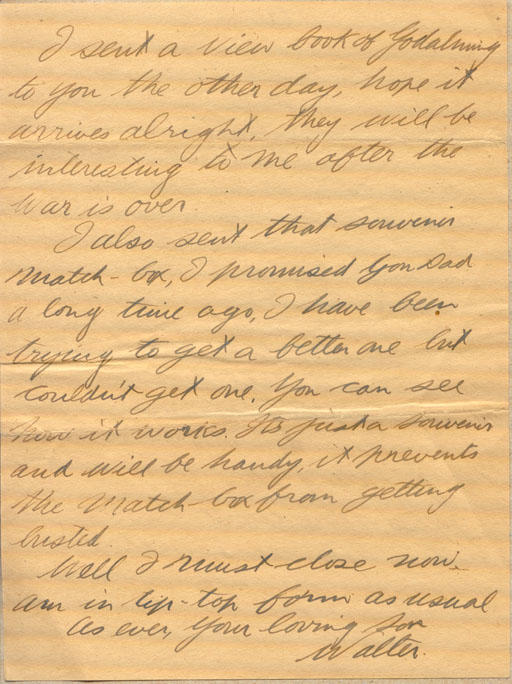 I sent a view book of Godalming
to you the other day, hope it
arrives alright, they will be
interesting to me after the
war is over.
I also sent that souvenir
match-box, I promised you Dad
a long time ago, I have been
trying to get a better one but
couldn't get one. You can see
how it works. Its just a souvenir
and will be handy, it prevents
the match-box from getting
busted.
Well I must close now.
am in tip-top form as usual
As ever, your loving son
Walter.